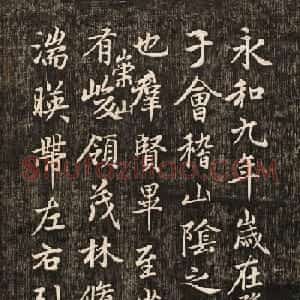 永和九年歲在
子會稽山陰之
也羣賢畢至
有崇山峻領茂林脩
湍暎帶左右引